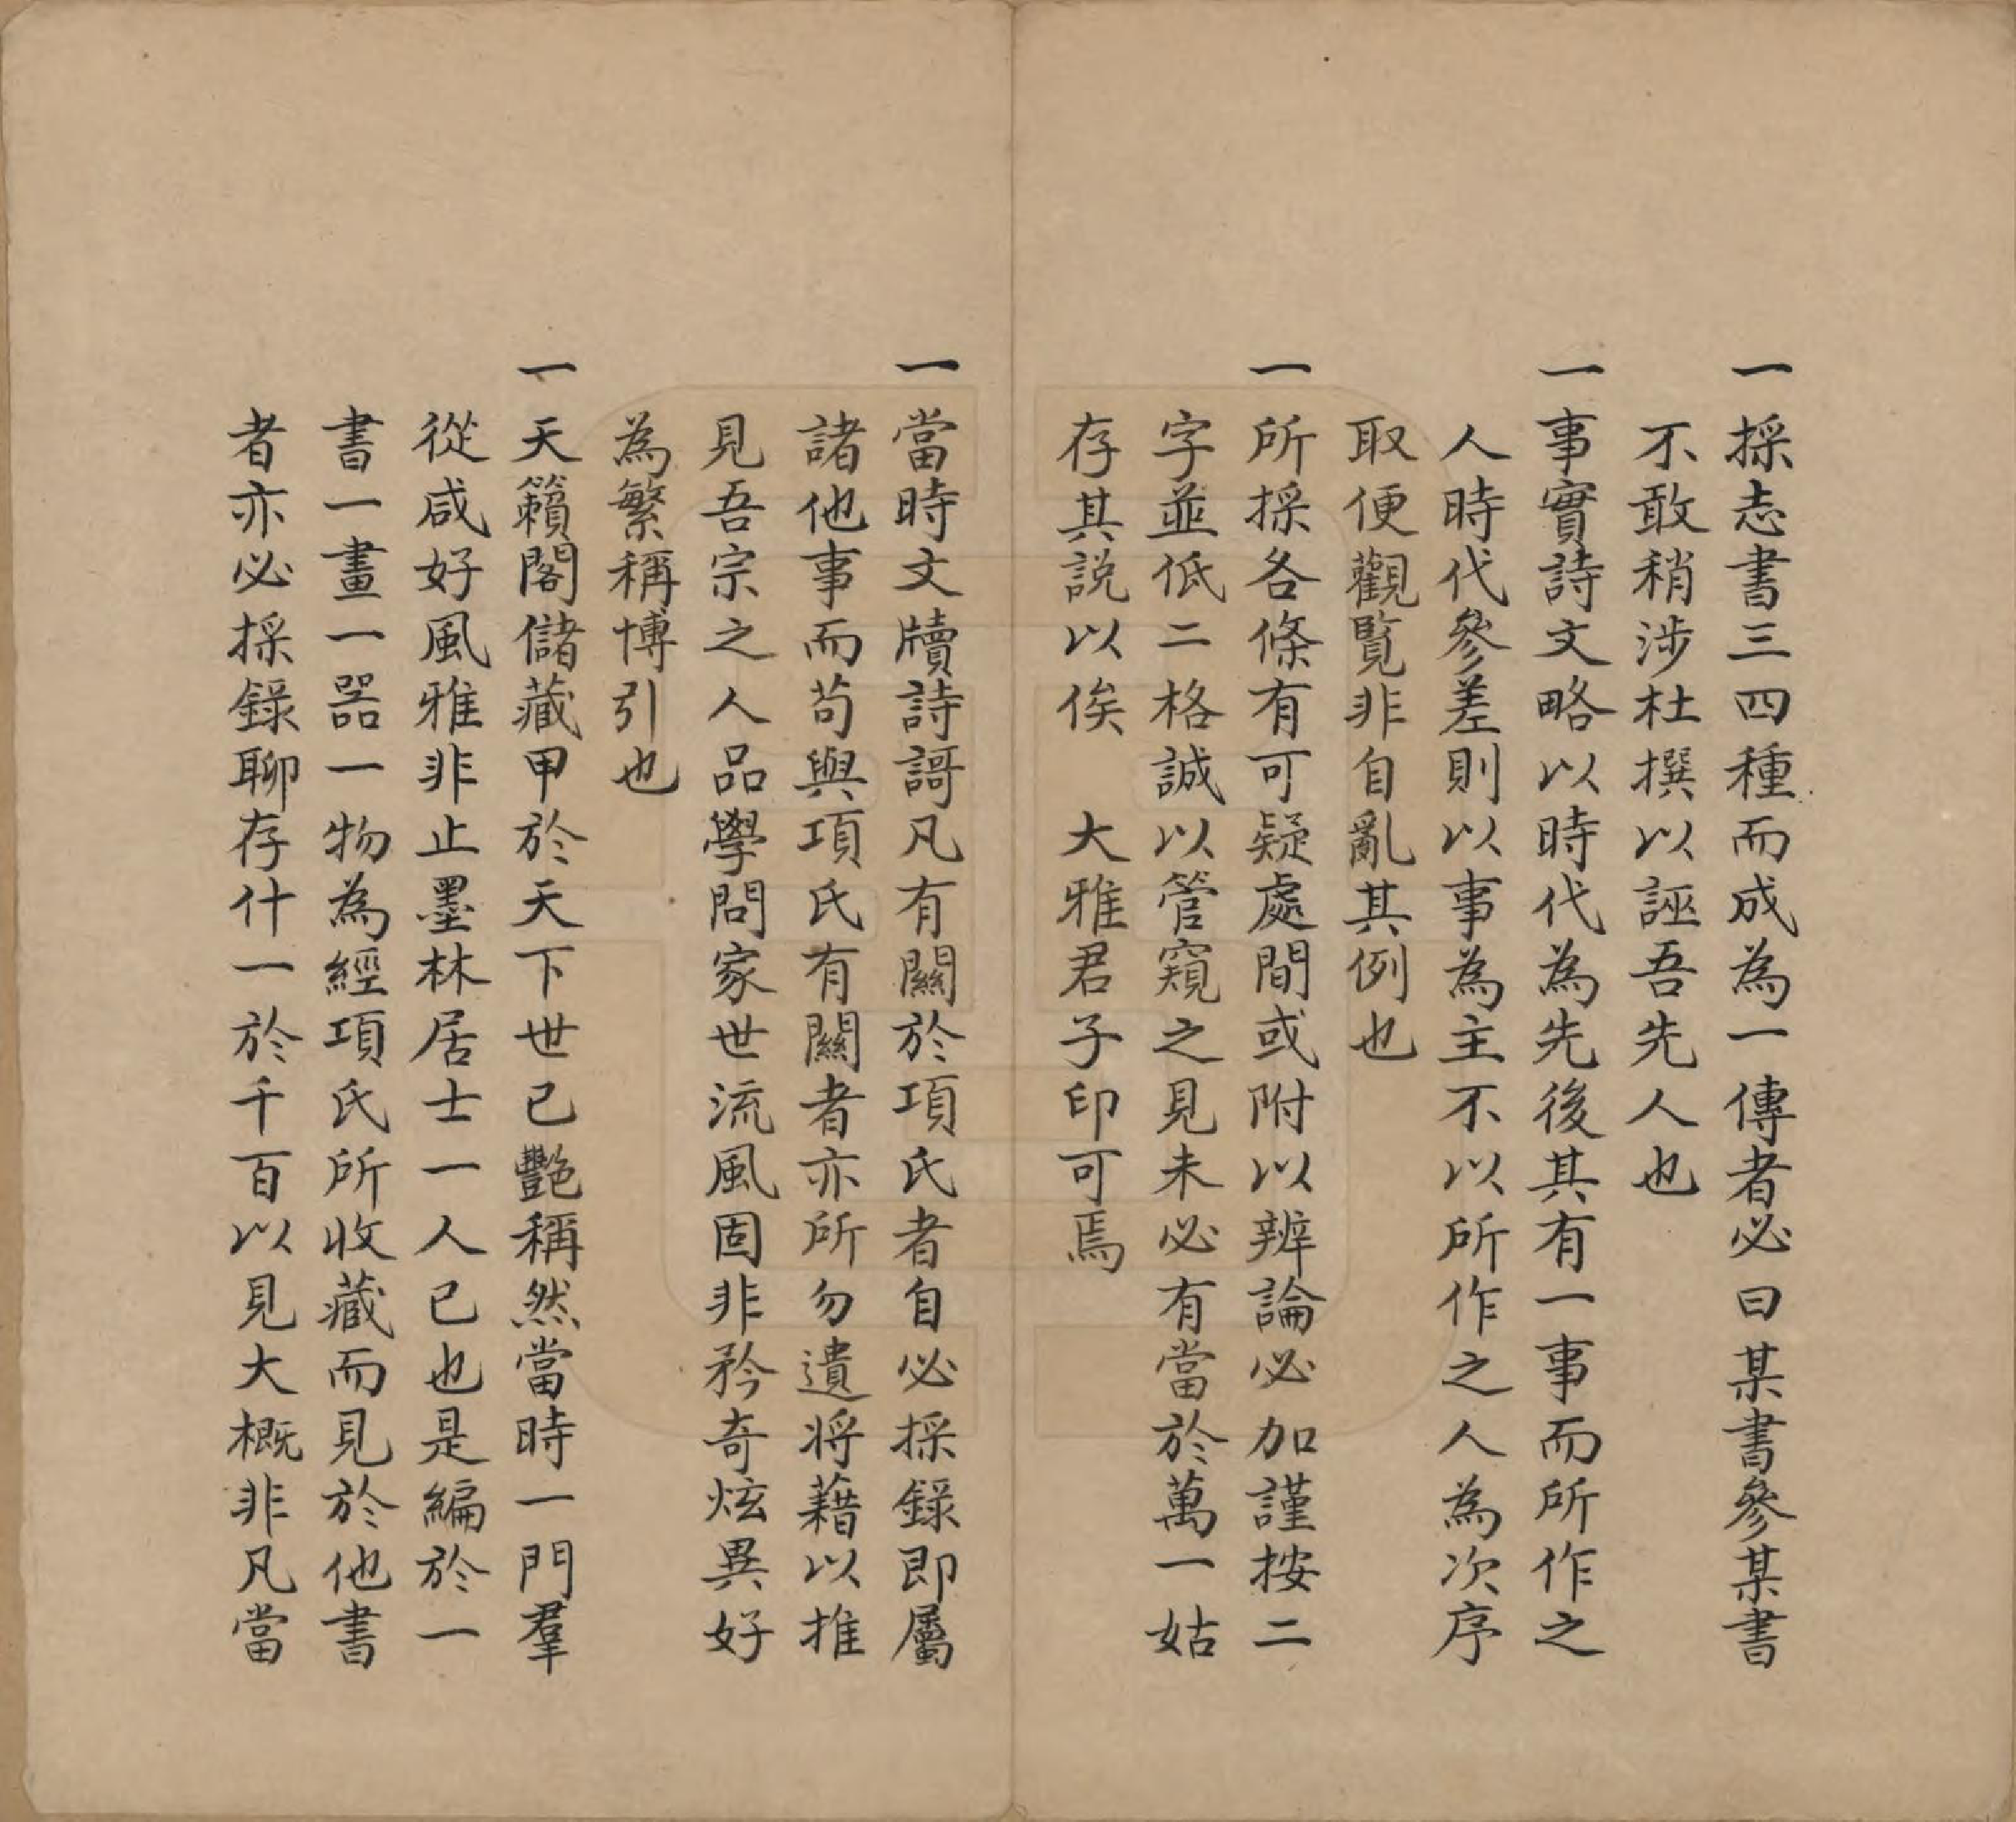 一採志書三四種而成為一傳者必曰某書參某書
不敢稍涉杜撰以誣吾先人也
一事實詩文略以時代為先後其有一事而所作之
人時代參差則以事為主不以所作之人為次序
取便觀覽非自亂其例也
一所採各條有可疑處間或附以辨論必加謹按二
字並低二格誠以管窺之見未必有當於萬一姑
存其説以俟　大雅君子印可焉
一當時文牘詩謌凡有關於項氏者自必採錄即屬
諸他事而苟與項氏有關者亦所勿遺将藉以推
見吾宗之人品學問家世流風固非矜奇炫異好
為繁稱博引也
一天籟閣儲藏甲於天下世已艷稱然當時一門羣
從咸好風雅非止墨林居士一人已也是編於一
書一畫一器一物為經項氏所收藏而見於他書
者亦必採錄聊存什一於千百以見大概非凡當